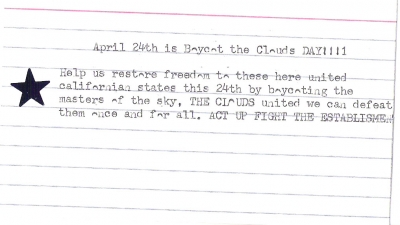 April 24th is Boycot the Clouds DAY!!!1
Help us restore freedom to these here united
californian states this 24th by boycoting the
masters of the sky, THE CLOUDS united we can defeat
them once and for all. ACT UP FIGHT THE ESTABLISME